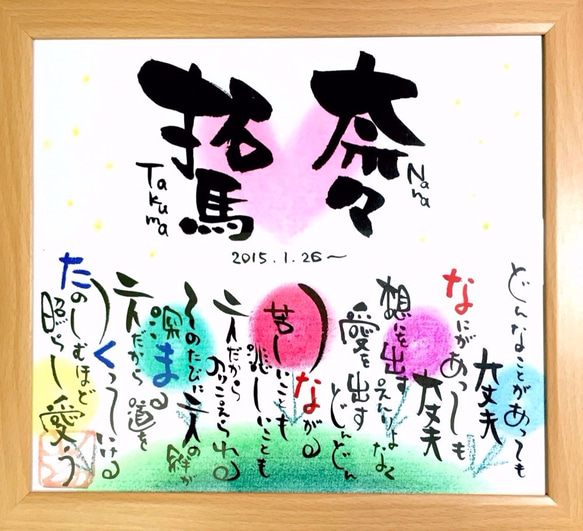 奈々
Nana
拓馬
Takuma
2015.1.26〜
どんなことがあっても
大丈夫
なにがあっても
大丈夫
想いを出すえんりょなく
愛を出す
どんどん
つながる
苦しいことも
悲しいことも
二人だから
のりこえられる
そのたびに二人の絆が
深まる
二人だから道を
つくっていける
たのしむほど
照らし愛う